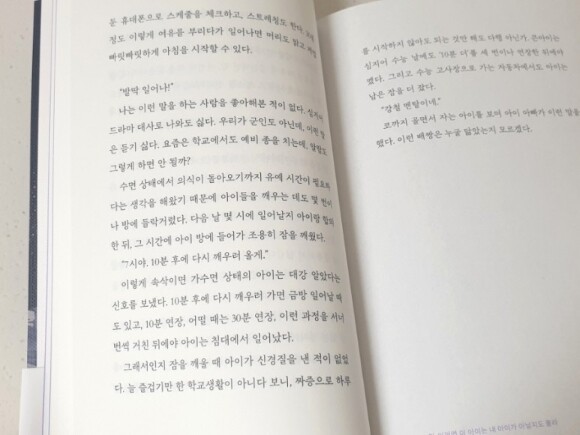 둔 휴대폰으로 스케줄을 체크하고, 스트레칭도 한다.
정도 이렇게 여유를 부리다가 일어나면 머리도 맑고 하루
빠릿빠릿하게 아침을 시작할 수 있다.
"발딱 일어나!"
나는 이런 말을 하는 사람을 좋아해본 적이 없다. 심지어
드라마 대사로 나와도 싫다. 우리가 군인도 아닌데, 이런 말
은 듣기 싫다. 요즘은 학교에서도 예비 종을 치는데,
그렇게 하면 안 될까?
수면 상태에서 의식이 돌아오기까지 유예 시간이 필요하
다는 생각을 해왔기 때문에 아이들을 깨우는 데도 몇 번이
나 방에 들락거렸다. 다음 날 몇 시에 일어날지 아이랑 합의
한 뒤, 그 시간에 아이 방에 들어가 조용히 잠을 깨웠다.
"7시야. 10분 후에 다시 깨우러 올게."
이렇게 속삭이면 가수면 상태의 아이는 대강 알았다는
신호를 보냈다. 10분 후에 다시 깨우러 가면 금방 일어날 때
도 있고, 10분 연장, 어떨 때는 30분 연장. 이런 과정을 서너
번씩 거친 뒤에야 아이는 침대에서 일어났다.
그래서인지 잠을 깨울 때 아이가 신경질을 낸 적이 없었
다. 늘 즐겁기만 한 학교생활이 아니다 보니, 짜증으로 하루
를 시작하지 않아도 되는 것만 해도 다행 아닌가. 큰아이는
심지어 수능 날에도 '10분 더'를 세 번이나 연장한 뒤에야
깼다. 그리고 수능 고사장으로 가는 자동차에서도 아이는
남은 잠을 더 잤다.
"강철 멘탈이네."
코까지 골면서 자는 아이를 보며 아이 아빠가 이런 말을
했다. 이런 배짱은 누굴 닮았는지 모르겠다.